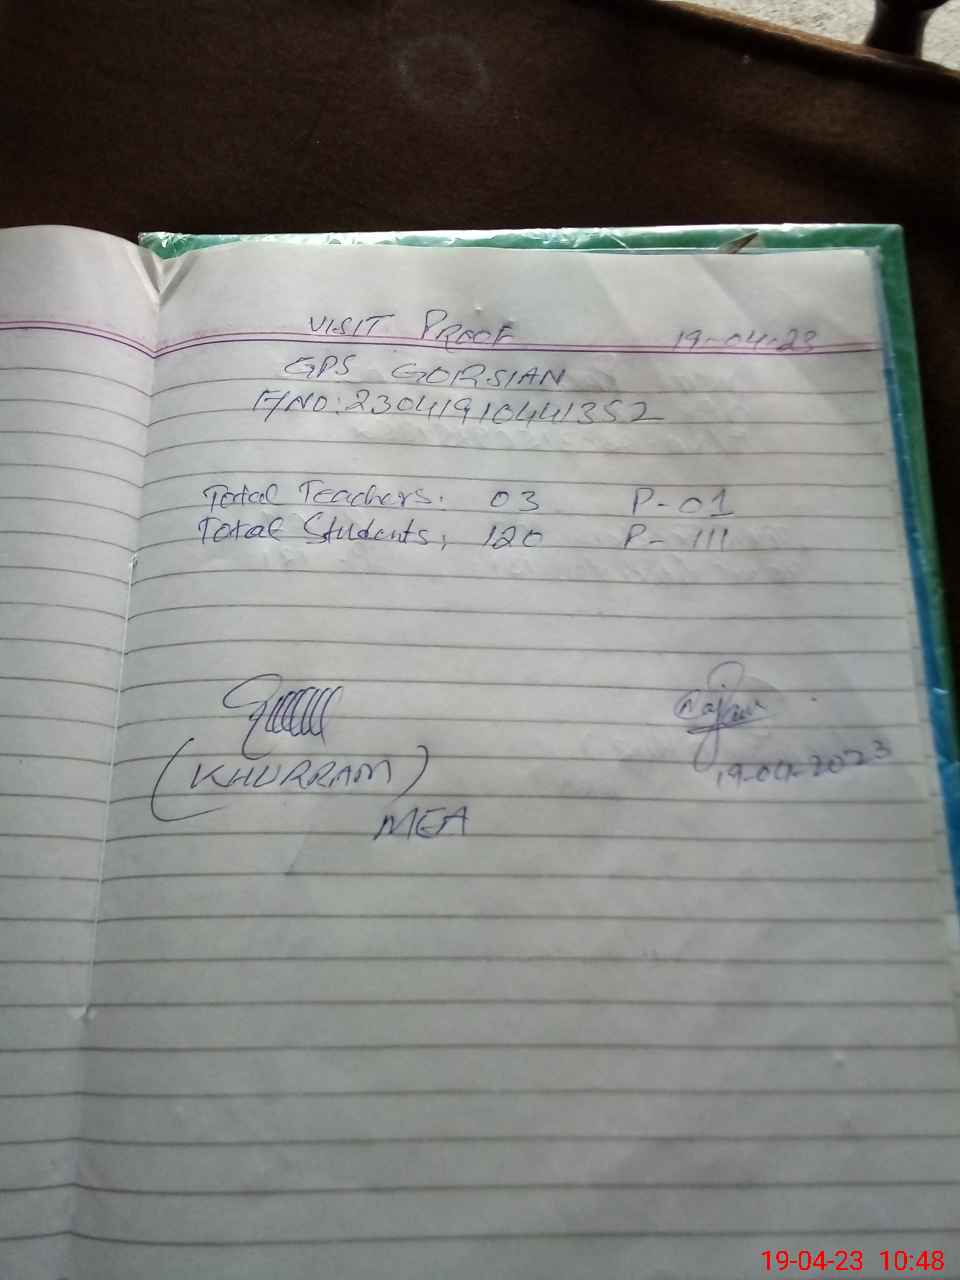 VISIT PROOF 19-04-23
GPS GORSIAN
F/NO: 23041910441352
Total Teachers: 03 P-01
Total Students: 120 P- 111
(KHURRAM)
MEA
19-04-2023
19-04-23 10:48